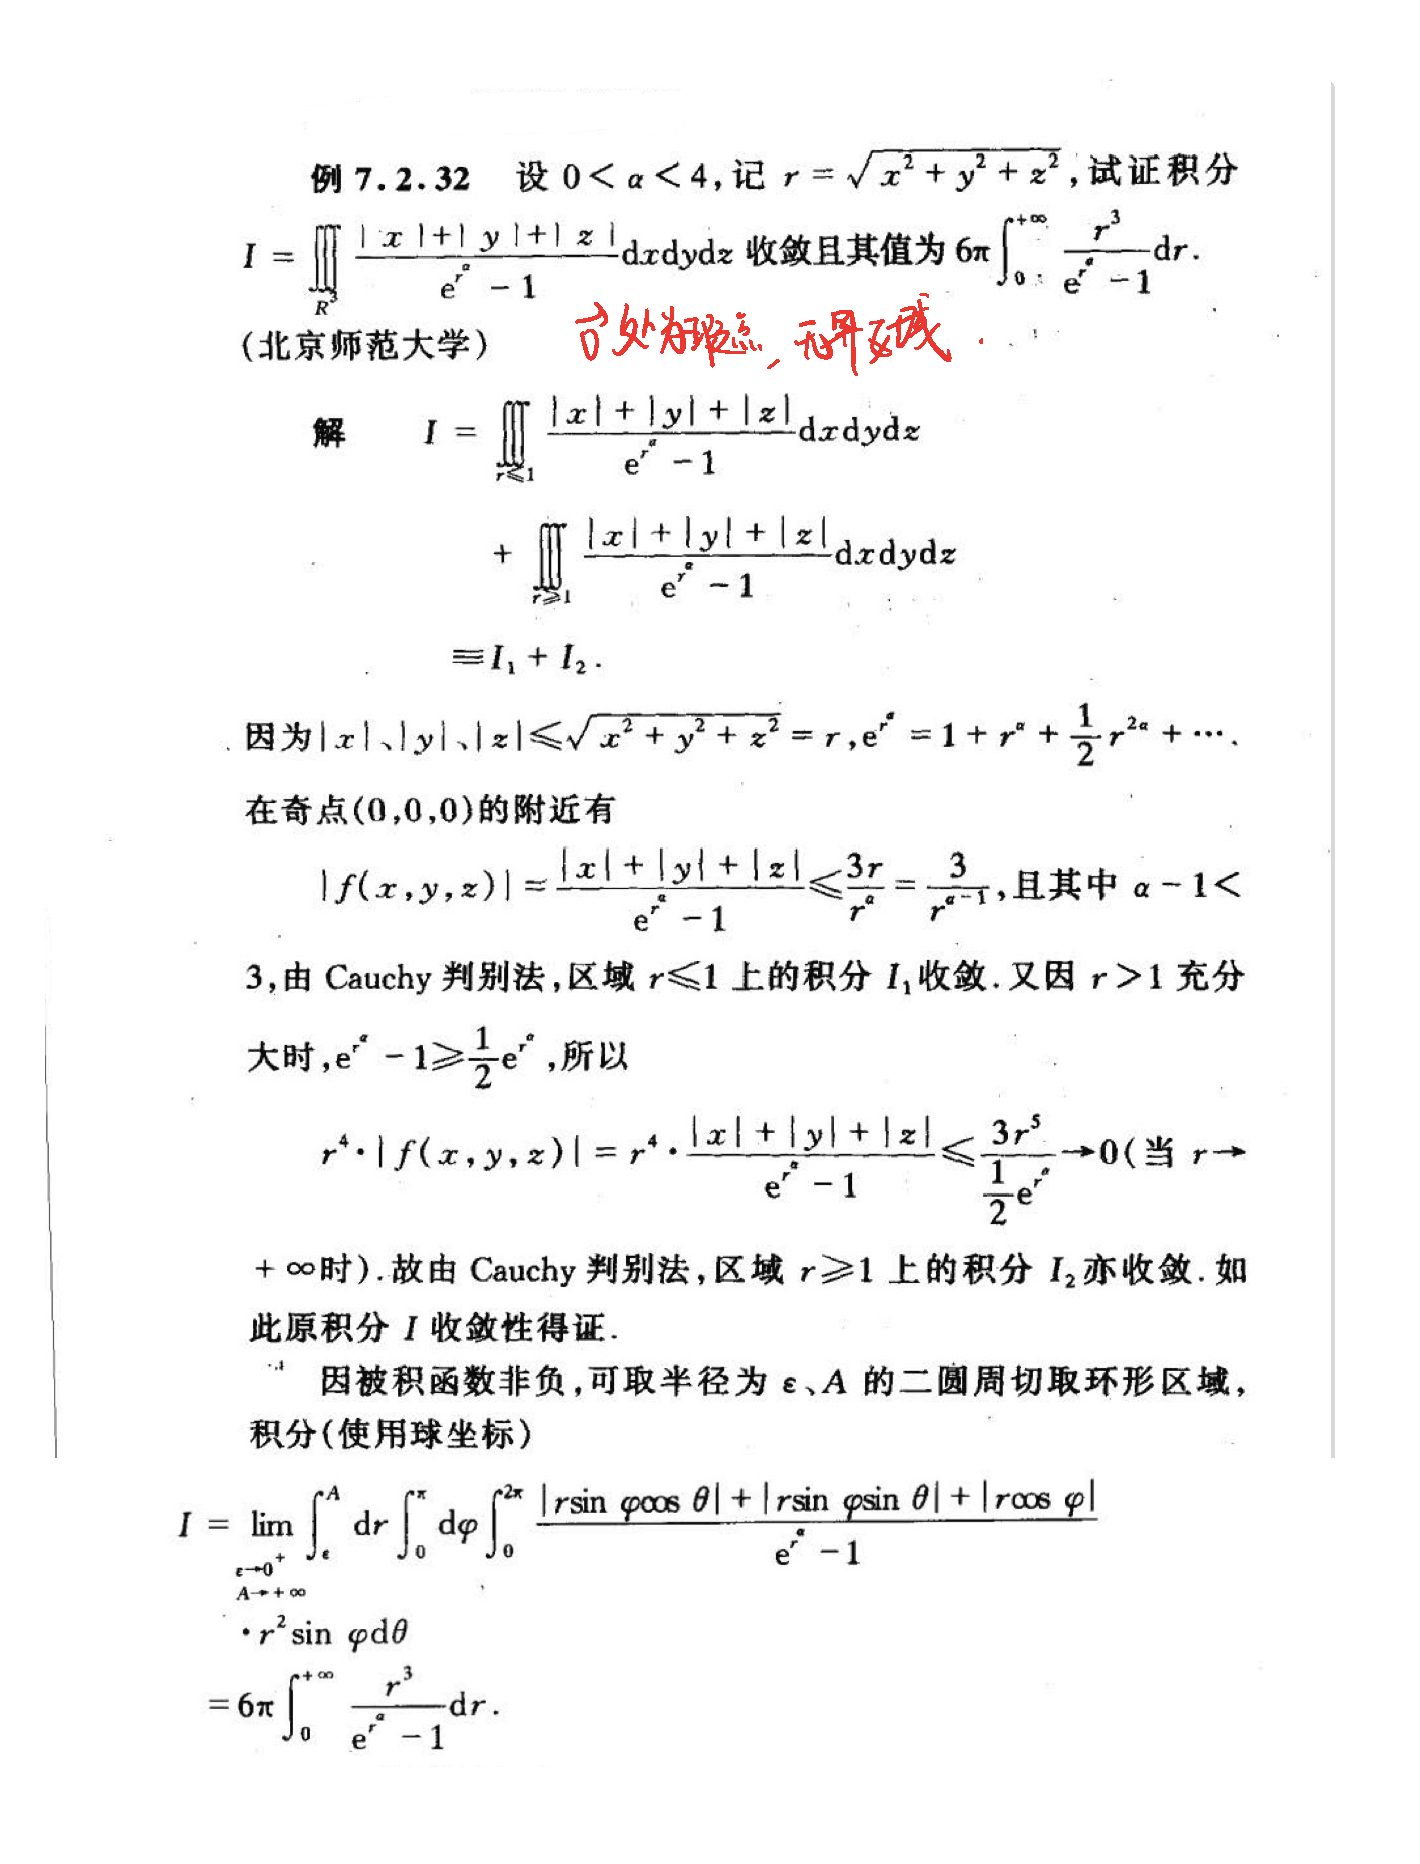 例 7.2.32 设 0 < α < 4, 记 r = √(x² + y² + z²), 试证积分
I = ∭_{R³} (|x|+|y|+|z|)/(e^{r^α} − 1) dxdydz 收敛且其值为 6π ∫_0^{+∞} r³/(e^{r^α} − 1) dr.
(北京师范大学) 0⃗处为瑕点, 无界区域.
解 I = ∭_{r≤1} (|x| + |y| + |z|)/(e^{r^α} − 1) dxdydz
+ ∭_{r≥1} (|x| + |y| + |z|)/(e^{r^α} − 1) dxdydz
≡ I₁ + I₂.
因为|x|、|y|、|z| ≤ √(x² + y² + z²) = r, e^{r^α} = 1 + r^α + (1/2)r^{2α} + ⋯.
在奇点(0,0,0)的附近有
|f(x,y,z)| = (|x| + |y| + |z|)/(e^{r^α} − 1) ≤ 3r/r^α = 3/r^{α−1}, 且其中 α − 1 <
3, 由 Cauchy 判别法, 区域 r≤1 上的积分 I₁收敛. 又因 r > 1 充分
大时, e^{r^α} − 1 ≥ (1/2)e^{r^α}, 所以
r⁴·|f(x,y,z)| = r⁴·(|x| + |y| + |z|)/(e^{r^α} − 1) ≤ 3r⁵/((1/2)e^{r^α}) → 0(当 r→
+∞时). 故由 Cauchy 判别法, 区域 r≥1 上的积分 I₂亦收敛. 如
此原积分 I 收敛性得证.
因被积函数非负, 可取半径为 ε、A 的二圆周切取环形区域,
积分(使用球坐标)
I = lim_{ε→0⁺, A→+∞} ∫_ε^A dr ∫_0^π dφ ∫_0^{2π} (|rsin φcos θ| + |rsin φsin θ| + |rcos φ|)/(e^{r^α} − 1)
·r²sin φdθ
= 6π ∫_0^{+∞} r³/(e^{r^α} − 1) dr.